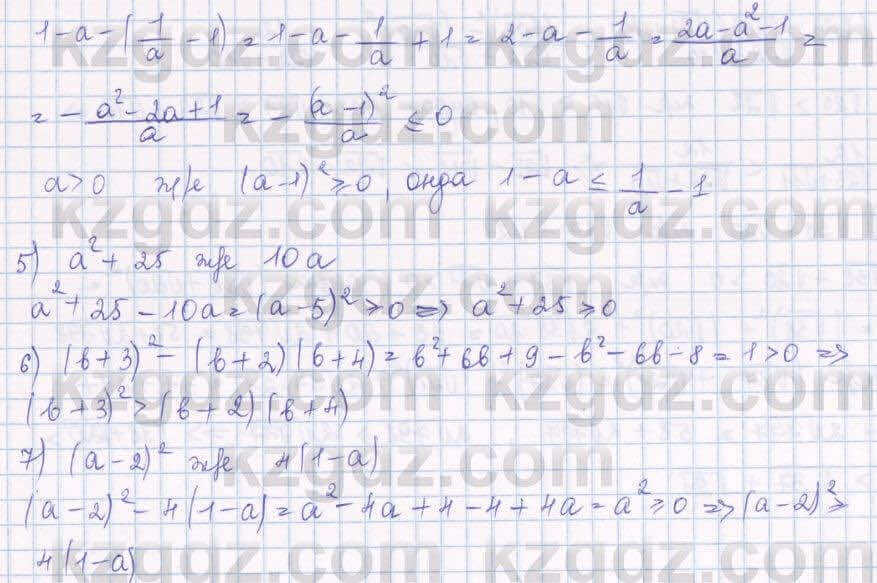 1-a-(1/a -1) = 1-a-1/a+1 = 2-a-1/a = (2a-a²-1)/a =
= -(a²-2a+1)/a = -(a-1)²/a ≤ 0
a>0 және (a-1)² ≥ 0, онда 1-a ≤ 1/a - 1
5) a²+25 және 10a
a²+25-10a = (a-5)² ≥ 0 => a²+25 ≥ 0
6) (b+3)² - (b+2)(b+4) = b²+6b+9-b²-6b-8 = 1>0 =>
(b+3)² > (b+2)(b+4)
7) (a-2)² және 4(1-a)
(a-2)² - 4(1-a) = a²-4a+4-4+4a = a² ≥ 0 => (a-2)² ≥
4(1-a)
kzgdz.com